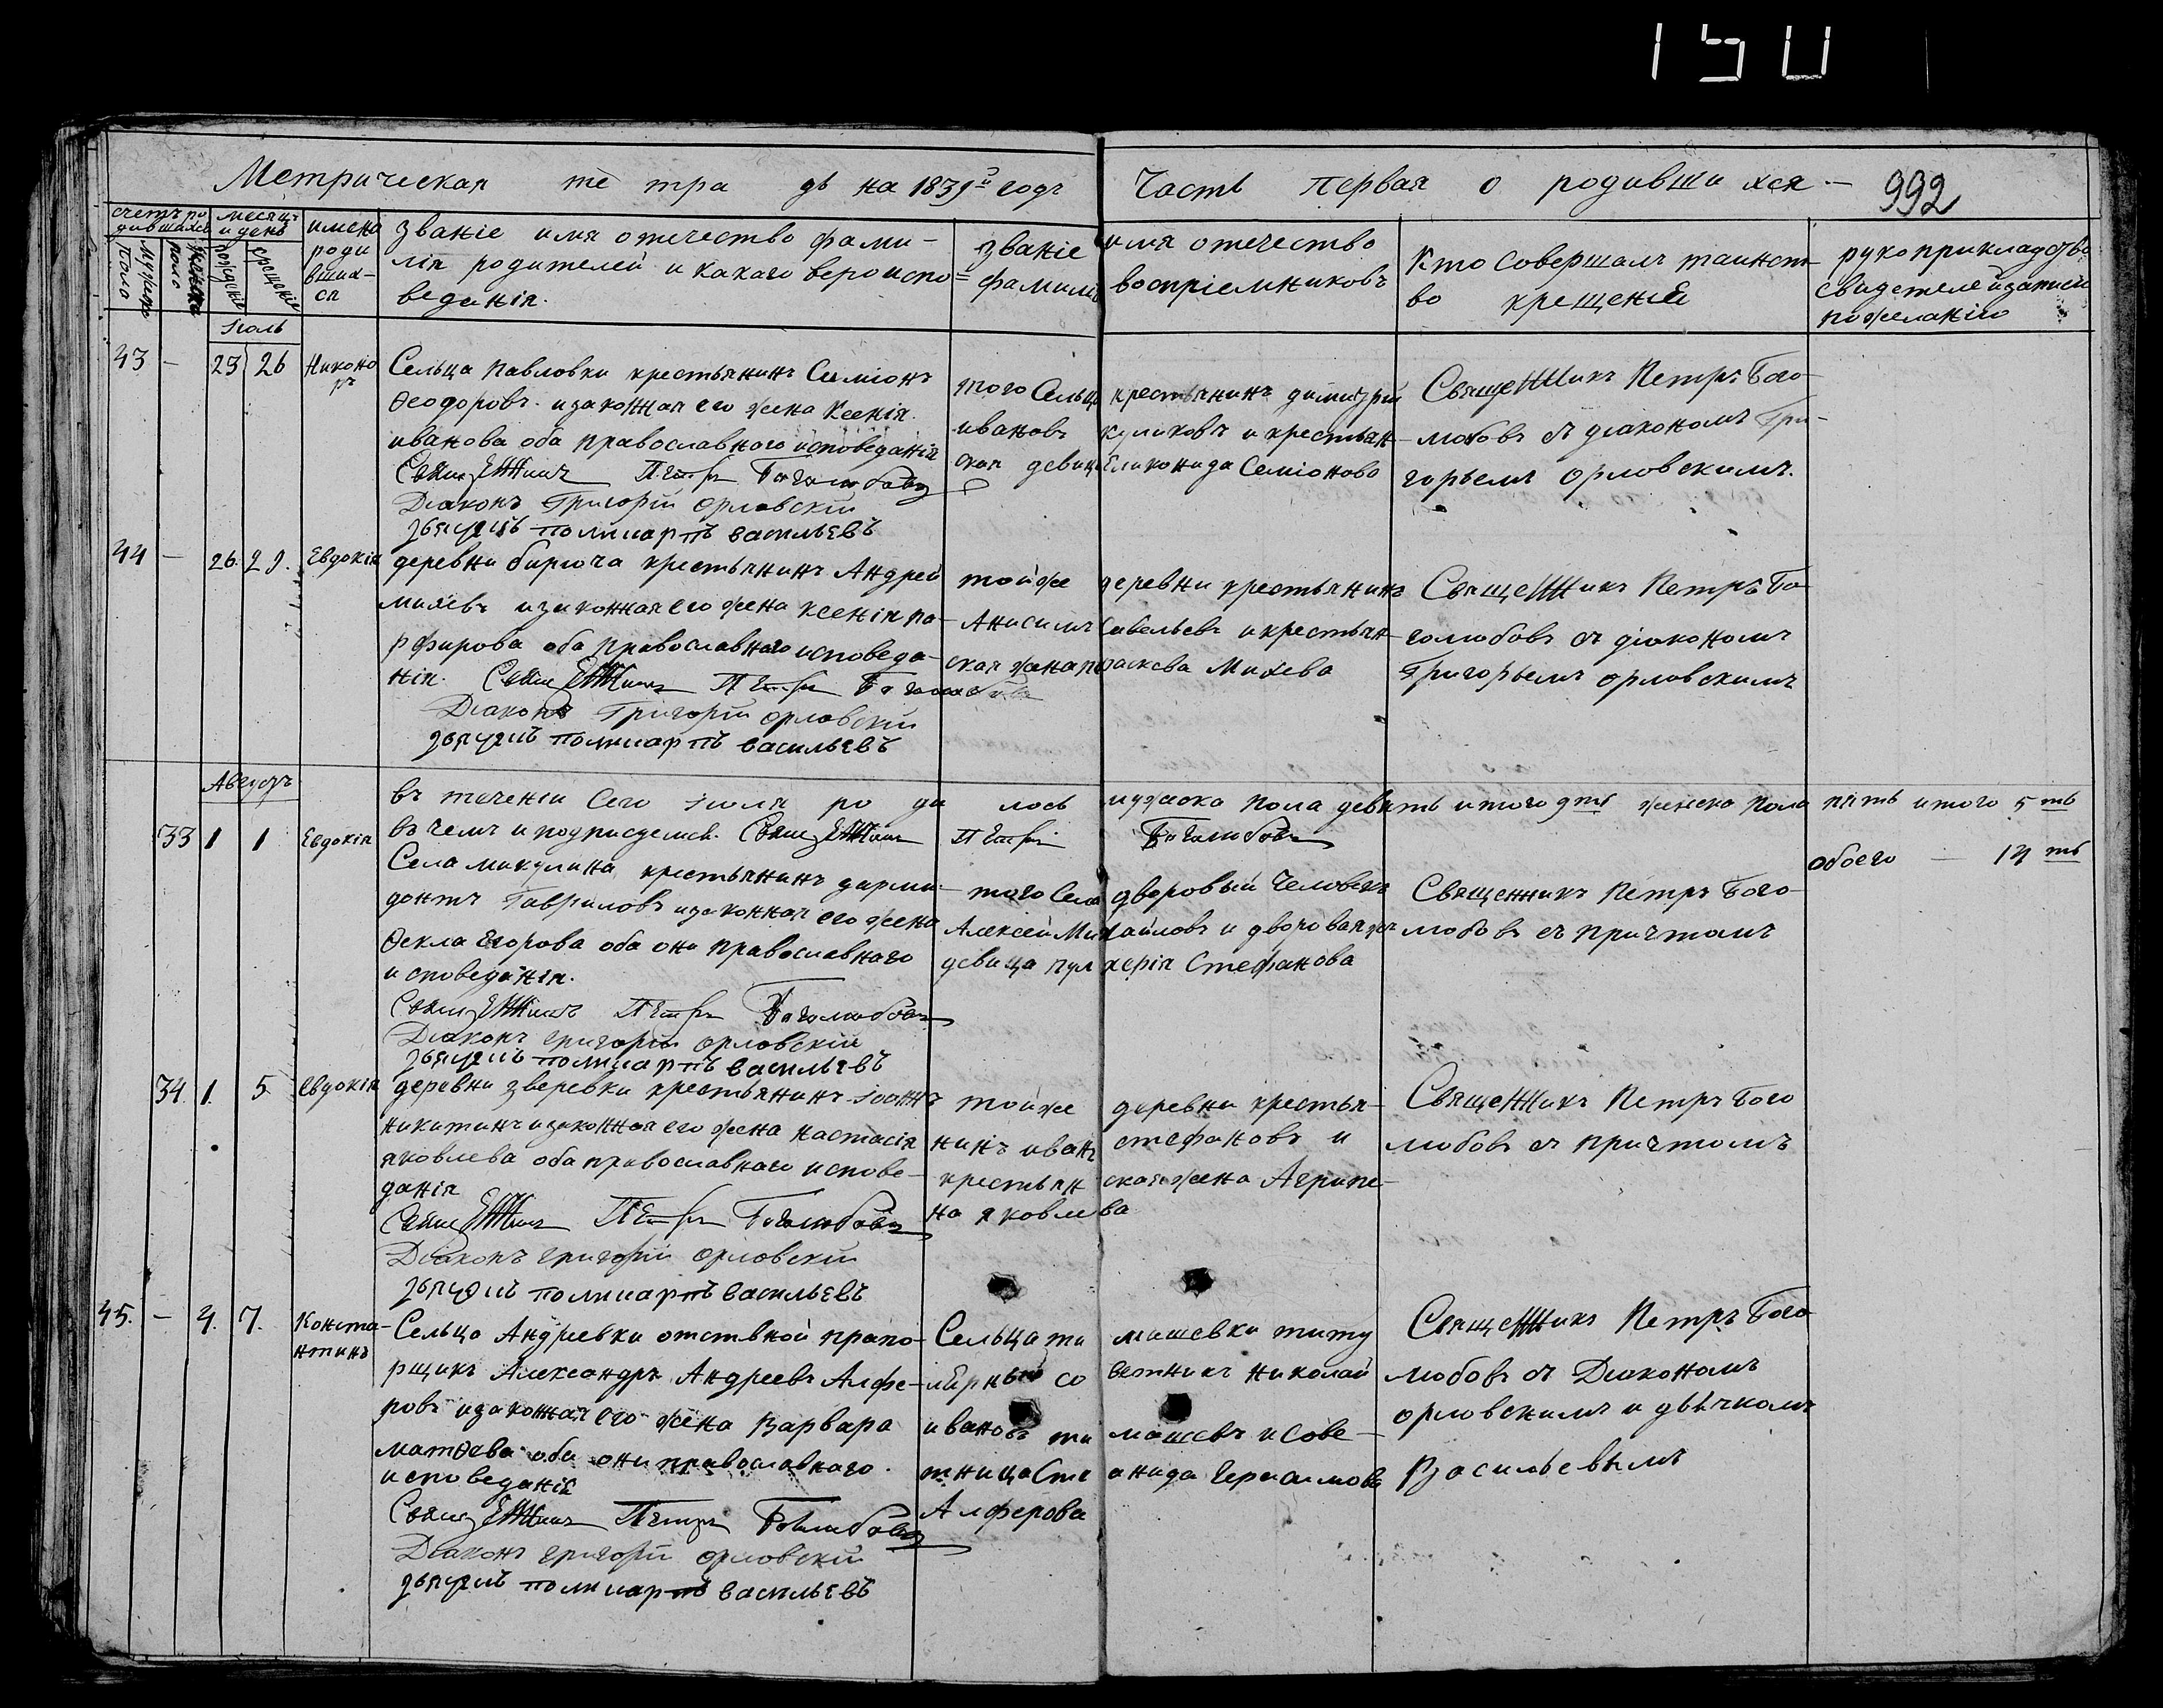 150
Метрическая те тра дь на 1839й годъ Часть первая о родивши хся —
992
счетъ ро
дившихся
мужеска
пола
женска
пола
месяцъ
и день
рожденія
крещенія
имена
роди
вших-
ся
Званіе имя отечество фами-
лія родителей и какаго вероиспо=
веданія.
Званіе имя отечество
фамилія воспріемниковъ
Кто совершалъ таинст
во крещенія
рукоприкладство
свидетелей записи
пожеланію
Іюль
43 — 23 26 Никано
ръ
Сельца Павловки крестьянинъ Симіонъ
Ѳеодоровъ и законная его жена Ксенія
иванова оба православного исповеданія
Священникъ Петръ Боголюбовъ
Діаконъ Григорій Орловскій
дьячекъ поликарпъ васильевъ
того Сельца крестьянинъ димитрій
ивановъ куликовъ и крестьян-
ская девица Еликонида Семіонова
Священникъ Петръ Бого-
любовъ съ діакономъ Гри-
горьемъ Орловскимъ.
44 — 26. 29. Евдокія
деревни бирюча крестьянинъ Андрей
михевъ и законная его жена ксенія по-
рфирова оба православнаго исповеда-
нія. Священникъ Петръ Боголюбовъ
Діаконъ Григорій Орловскій
дьячекъ поликарпъ васильевъ
тойже деревни крестьянинъ
Анисимъ Савельевъ и крестьян-
ская жена параскева Михева
Священникъ Петръ Бо-
голюбовъ съ діакономъ
Григорьемъ орловскимъ
Августъ
въ теченіи сего іюля ро ди лось мужска пола девять итого 9ть женска пола пять итого 5ть
въ чемъ и подписуемся. Священникъ Петръ Боголюбовъ
обоего — 14ть
33 1 1 Евдокія
Села микулина крестьянинъ дорми-
донтъ Гавриловъ и законная его жена
Ѳекла Егорова оба они православнаго
исповеданія.
Священникъ Петръ Боголюбовъ
Діаконъ григорій орловскій
дьячекъ поликарпъ васильевъ
того Села дворовый человекъ
Алексей Михайловъ и дворовая же
девица пулхерія Стефанова
Священникъ Петръ Бого-
любовъ съ причтомъ
34. 1. 5 Евдокія
деревни зверевки крестьянинъ іоаннъ
никитинъ и законная его жена настасія
яковлева оба православнаго испове-
данія
Священникъ Петръ Боголюбовъ
Діаконъ григорій орловскій
дьячекъ поликарпъ васильевъ
тойже деревни крестья-
нинъ иванъ стефановъ и
крестьян ская жена Агрипе-
на яковлева
Священникъ Петръ Бого
любовъ съ причтомъ
45. — 4. 7. Конста-
нтинъ
Сельца Андреевки отствной прапо-
рщикъ Александръ Андреевъ Алфе-
ровъ и законная его жена Варвара
матѳева оба они православнаго
исповеданія
Священникъ Петръ Боголюбовъ
Діаконъ григорій орловскій
дьячекъ поликарпъ васильевъ
Сельца ти машевки титу
лярный со ветникъ николай
ивановъ ти машевъ и сове-
тница Сте анида Герасимова
Алферова
Священникъ Петръ Бого
любовъ съ Діакономъ
орловскимъ и дьячкомъ
Васильевымъ